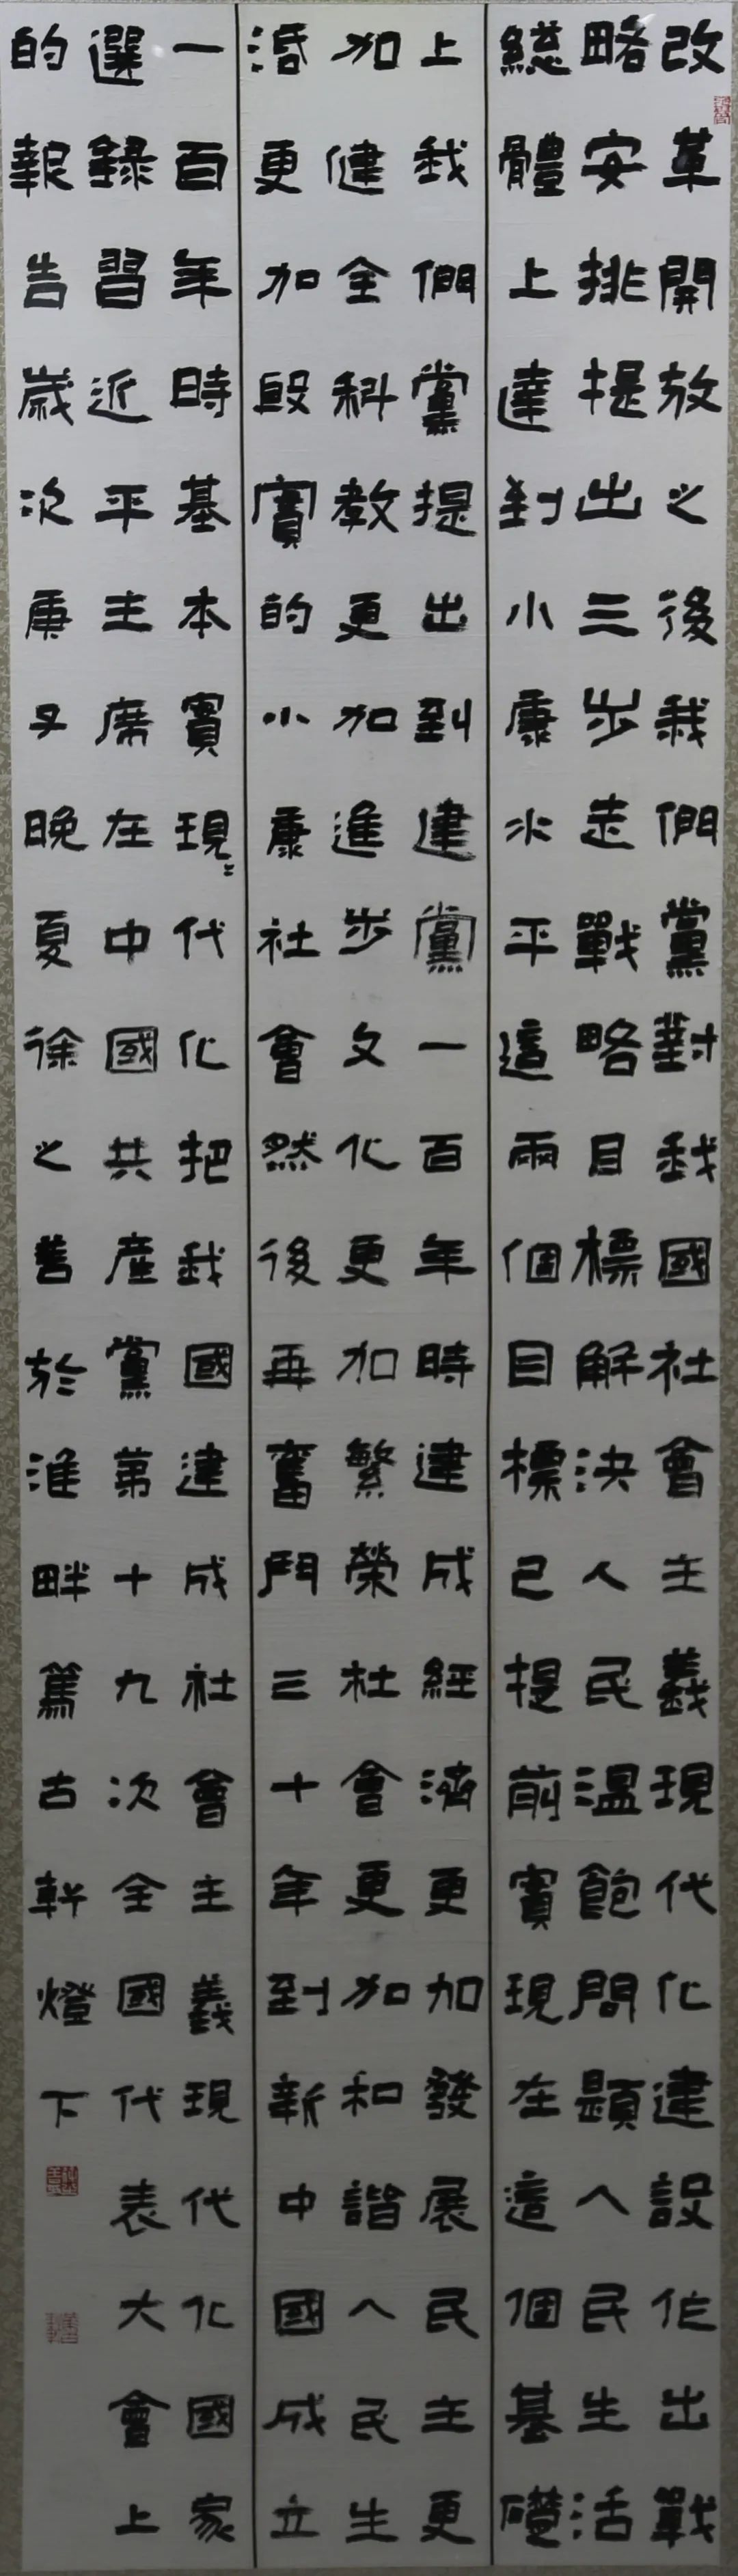 改革開放之後我們黨對我國社會主義現代化建設作出戰
略安排提出三步走戰略目標解決人民溫飽問題人民生活
總體上達到小康水平這兩個目標已提前實現在這個基礎
上我們黨提出到建黨一百年時建成經濟更加發展民主更
加健全科教更加進步文化更加繁榮社會更加和諧人民生
活更加殷實的小康社會然後再奮鬥三十年到新中國成立
一百年時基本實現々代化把我國建成社會主義現代化國家
選錄習近平主席在中國共產黨第十九次全國代表大會上
的報告歲次庚子晚夏徐之善於淮畔篤古軒燈下